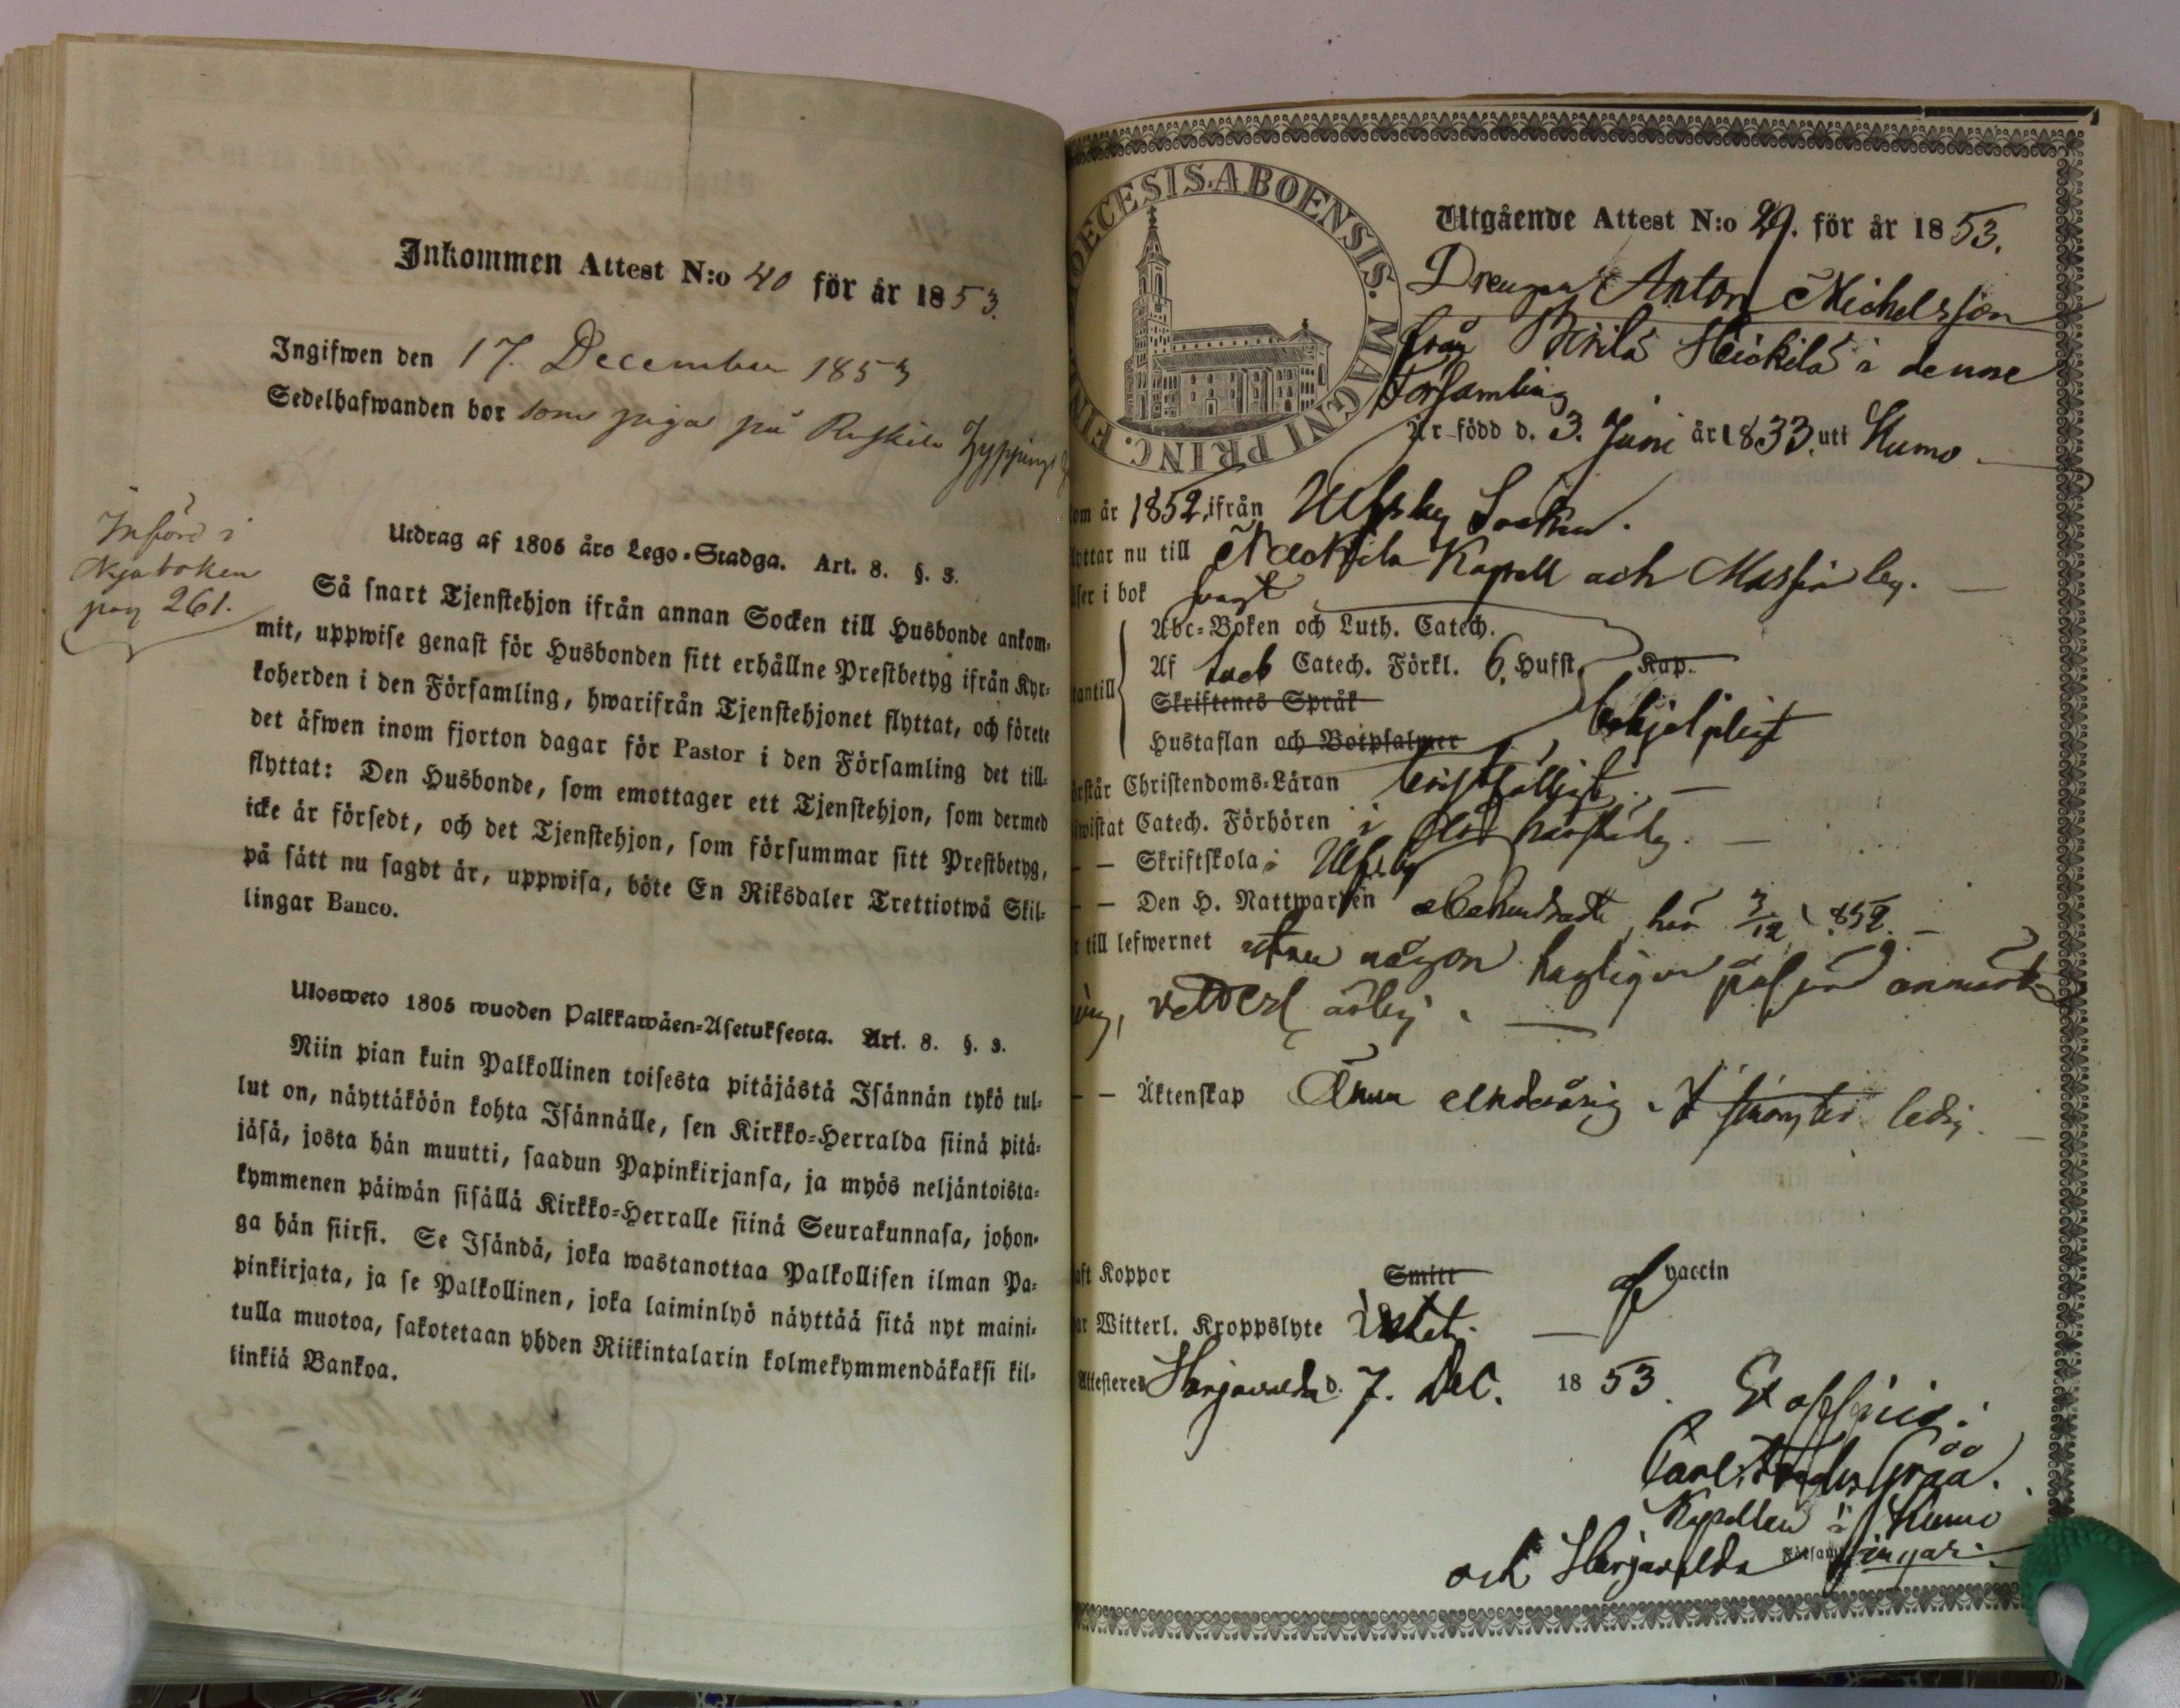 Inkommen Attest N:o 40 för år 1853.
Ingifwen den 17. December 1853
Sedelhafwanden bor som piga på
Införd i
Nya boken
pag 261.
Utdrag af 1805 års Lego-Stadga. Art. 8. §. 3.
Så snart Tjenstehjon ifrån annan Socken till Husbonde ankom-
mit, uppwise genast för Husbonden sitt erhållne Prestbetyg ifrån Kyr-
koherden i den Församling, hwarifrån Tjenstehjonet flyttat, och förete
det äfwen inom fjorton dagar för Pastor i den Församling det till-
flyttat: Den Husbonde, som emottager ett Tjenstehjon, som dermed
icke är försedt, och det Tjenstehjon, som försummar sitt Prestbetyg,
på sätt nu sagdt är, uppwisa, böte En Riksdaler Trettiotwå Skil-
lingar Banco.
Ulosweto 1805 wuoden Palkkawäen-Asetuksesta. Art. 8. §. 3.
Niin pian kuin Palkollinen toisesta pitäjästä Isännän tykö tul-
lut on, näyttäköön kohta Isännälle, sen Kirkko-Herralda siinä pitä-
jäsä, josta hän muutti, saadun Papinkirjansa, ja myös neljäntoista-
kymmenen päiwän sisällä Kirkko-Herralle siinä Seurakunnasa, johon-
ga hän siirsi. Se Isändä, joka wastanottaa Palkollisen ilman Pa-
pinkirjata, ja se Palkollinen, joka laiminlyö näyttää sitä nyt maini-
tulla muotoa, sakotetaan yhden Riikintalarin kolmekymmendäkaksi kil-
linkiä Bankoa.
DIOECESIS. ABOENSIS. MAGNI PRINC. FIN
Utgående Attest N:o 29. för år 1853.
Drengen Anton Michelsson
från Heickilä i denne
Församling
Är född d. 3. Juni år 1833. uti Kumo
om år 1852, ifrån Ulfsby Socken.
lyttar nu till Nackila Kapell och
äser i bok svagt
Abc-Boken och Luth. Catech.
antill Af Catech. Förkl. 6. Hufst. Kap.
Skriftenes Språk
Hustaflan och Botpsalmer behjelpligt
örstår Christendoms-Läran bristfälligt.
wistat Catech. Förhören i
— — Skriftskola i Ulfsby
— — Den H. Nattwarden här 3/12 1852.
r till lefwernet utan någon
— — Äktenskap ledig.
aft Koppor Smitt af vaccin
ar Witterl. Kroppslyte
Attesteres Harjavalda d. 7. Dec. 1853. Ex officio:
Carl
Kapellan i Kumo
och Harjavalda Församlingar.